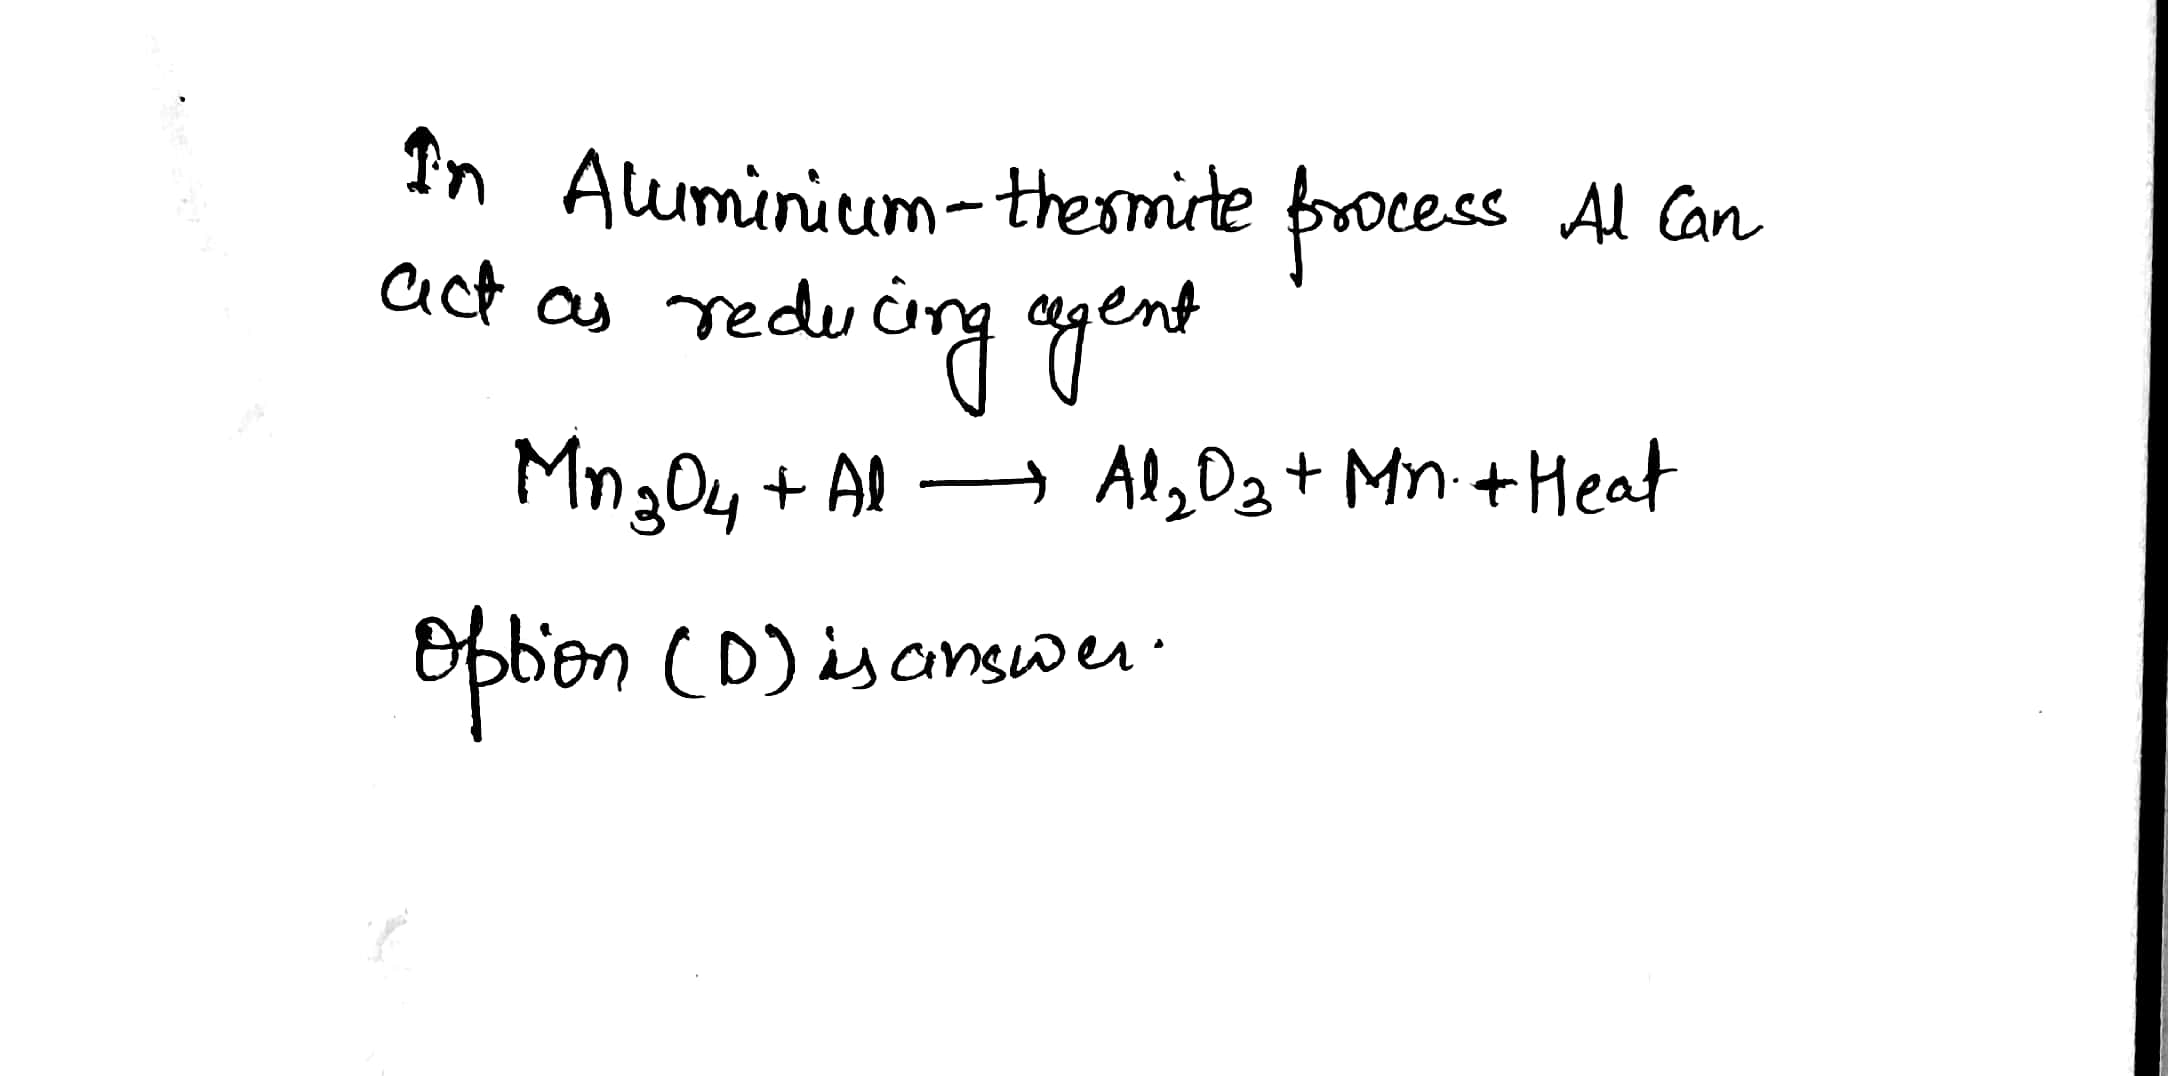 In Aluminium-thermite process Al Can
act as reducing agent
Mn₃O₄ + Al → Al₂O₃ + Mn + Heat
Option (D) is answer.